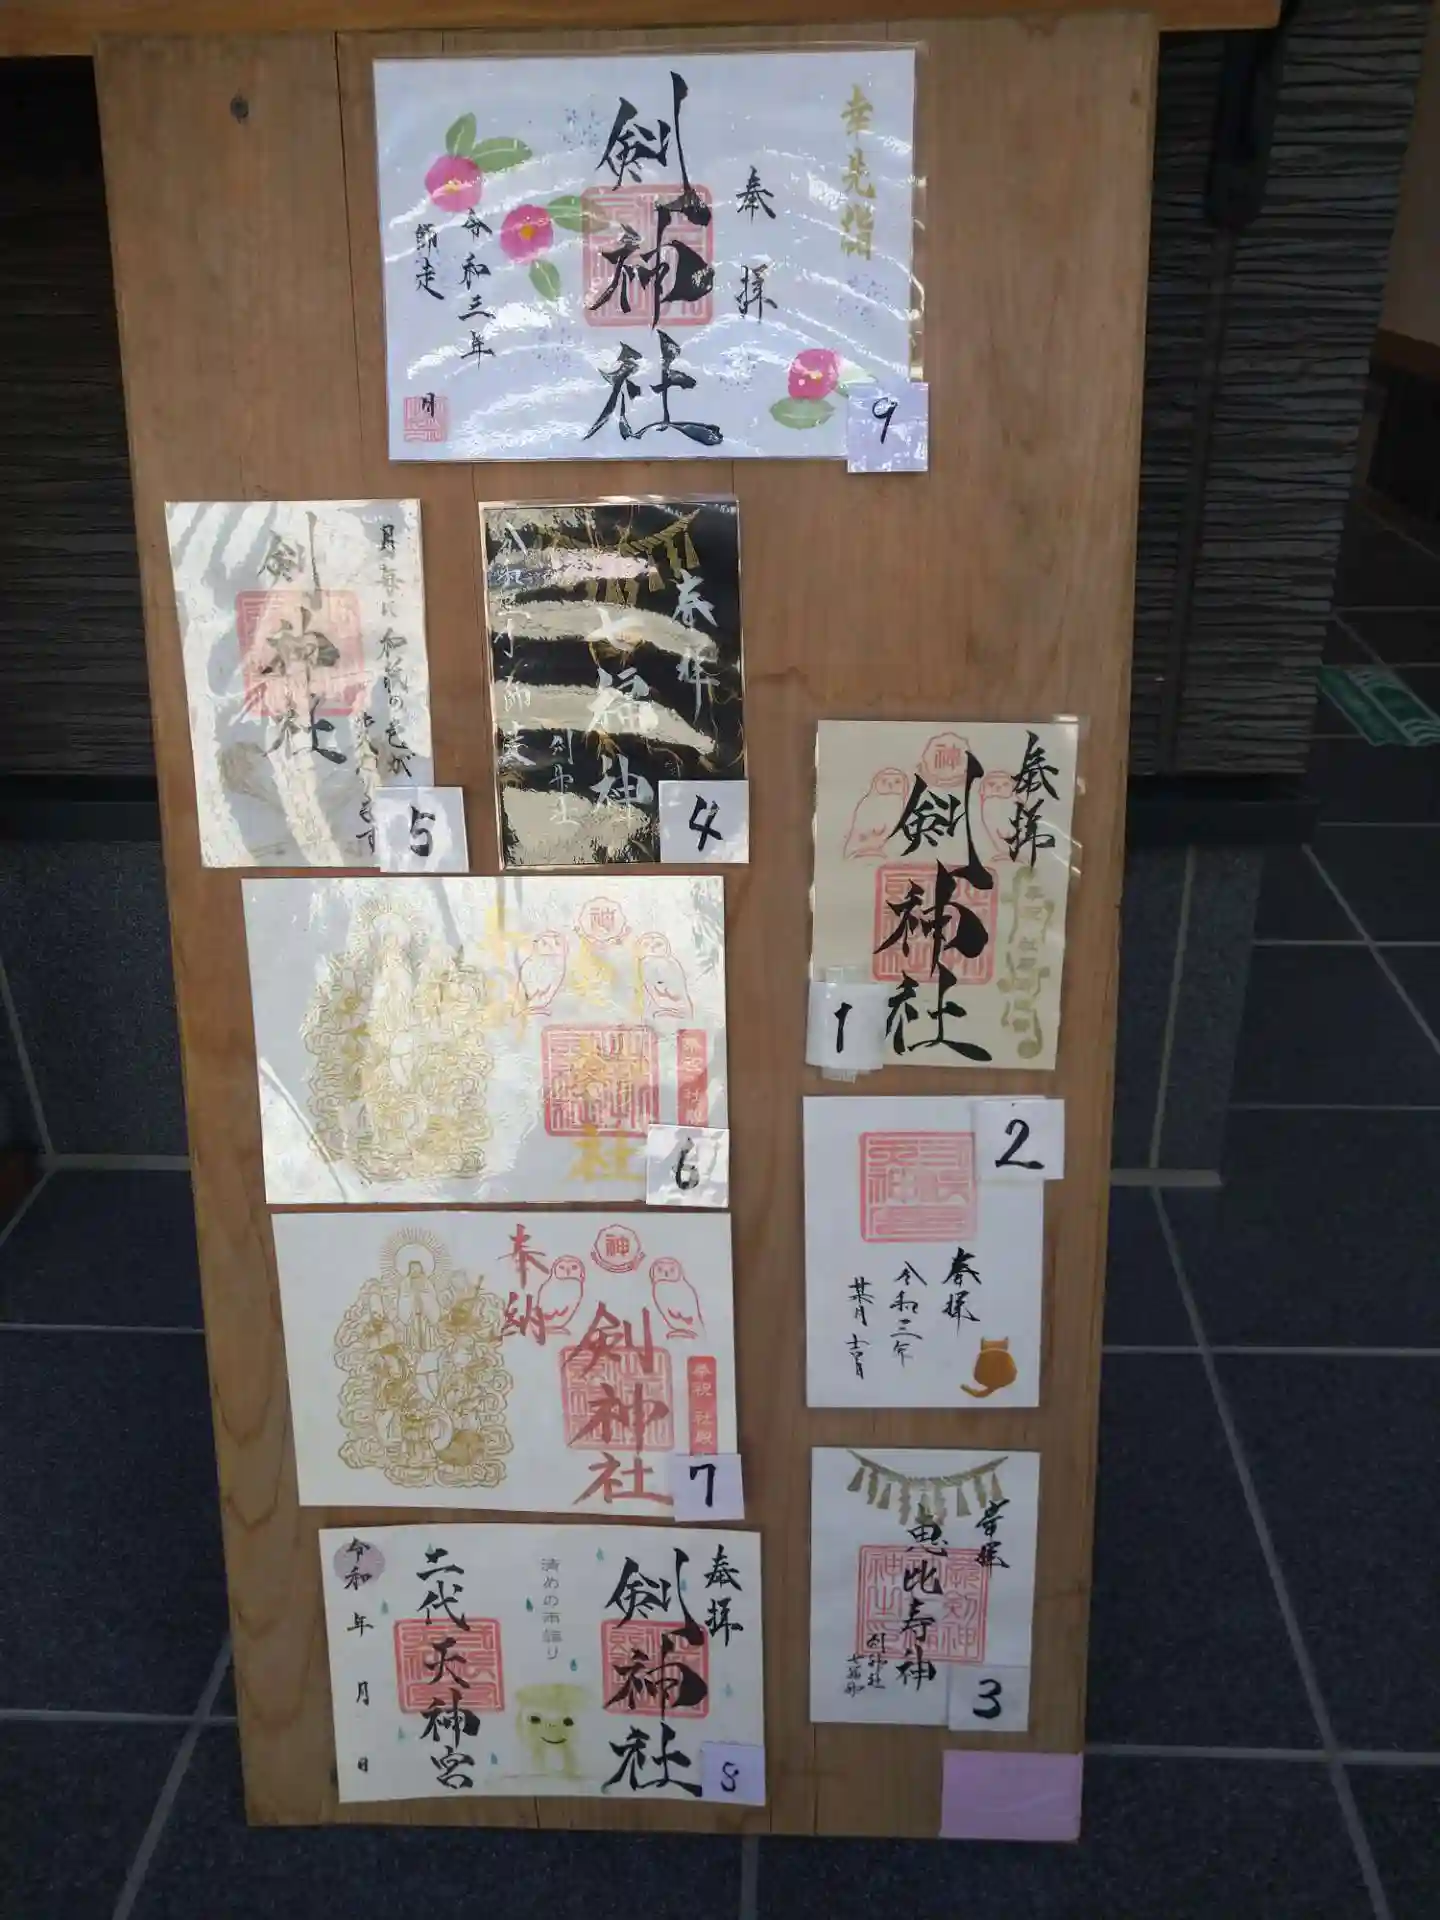 幸先詣
奉拝
剣神社
令和三年
師走
月
9
月毎に和紙の色が
剣神社
5
奉拝
七福神
剣神社
4
奉拝
神
剣神社
1
神
奉祝 社殿
社
6
奉納
神
剣神社
奉祝 社殿
7
2
奉拝
令和三年
葉月
奉拝
恵比寿神
剣神社
七福神
3
奉拝
剣神社
清めの雨
二代天神宮
令和 年 月 日
8